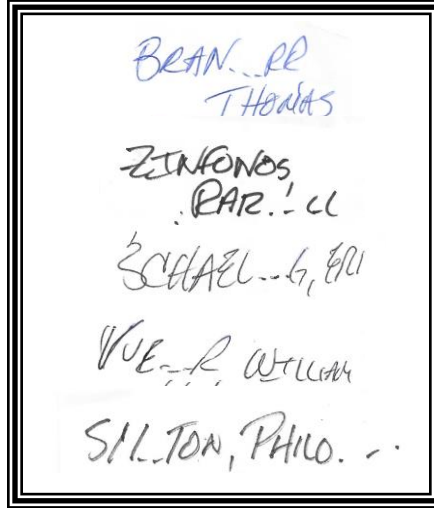 BRAN...RR
THOMAS
ZINFONOS
RAR.!-LL
SCHAEL...G, ERI
VUE...R, WILLIAM
SIL..TON, PHILO...